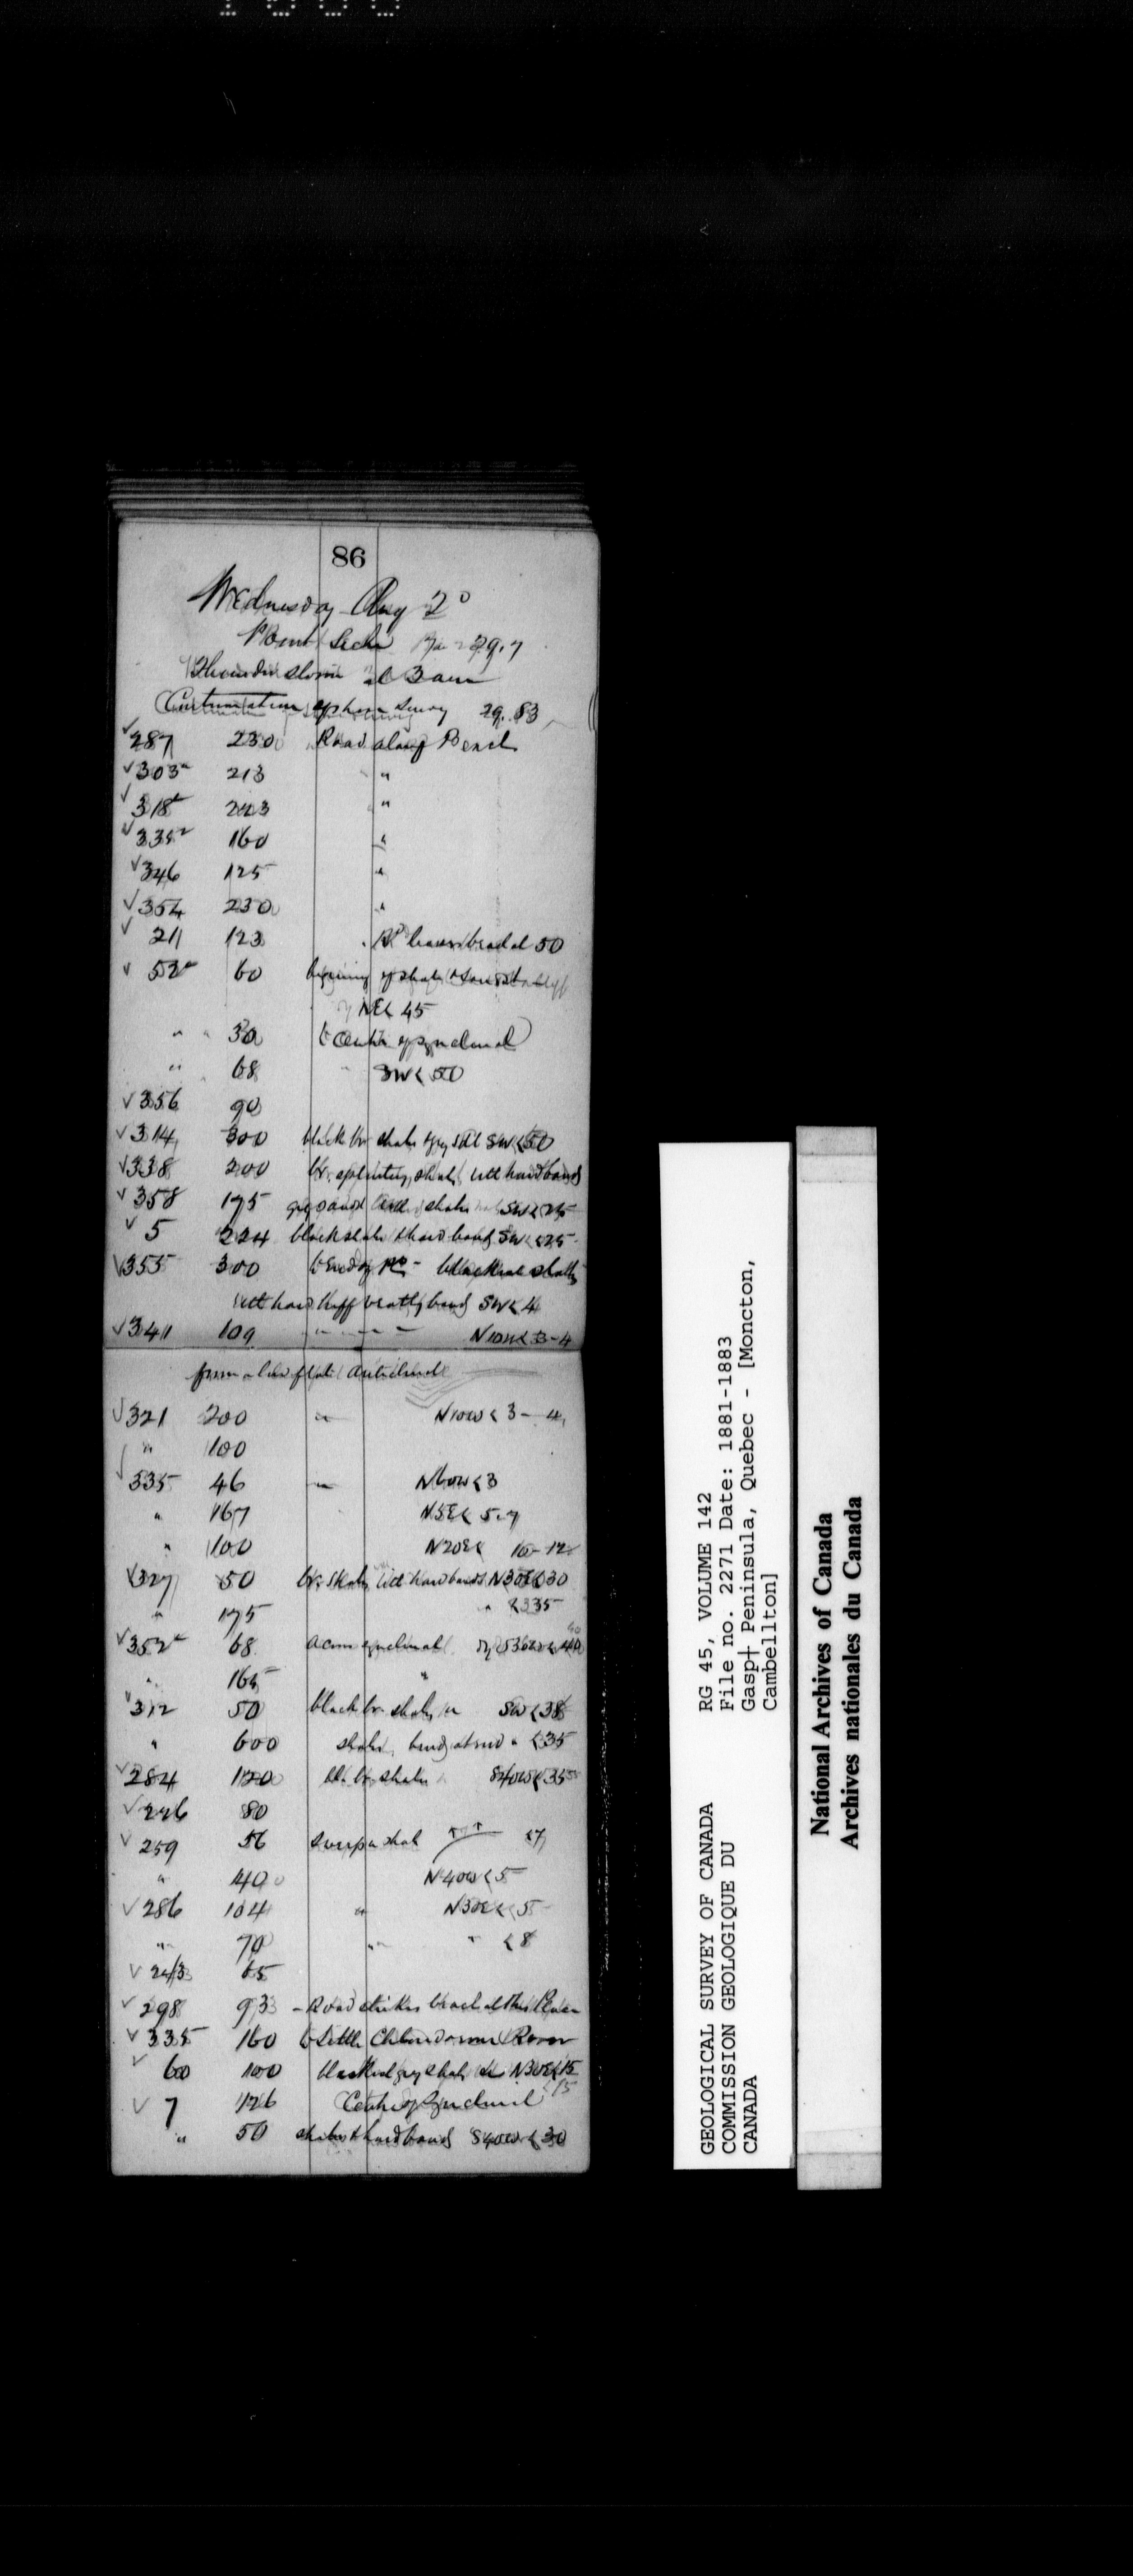 86
Wednesday Aug 2°
Point Seche 29.7
Thunder storm at 3 am
Continuation of shore survey 29.83
287 230 Road along Beach
303 213 "
318 223 "
335 160 "
346 125 "
354 230 "
211 123
52 60 shale
NE < 45
" 30 to Centre of synclinal
" 68 SW < 50
356 90
314 300 black br shale SW < 50
338 200 br. splintery shale with hard bands
358 175 shale SW < 25
5 224 black shale & hard bands SW < 25
355 300 to End of Pt -
with hard bands SW < 4
341 109 " N10W < 3-4
from a low flat anticlinal
321 200 " N10W < 3-4
" 100
335 46 " N60W < 3
" 167 N5E < 5-7
" 100 N20E < 10-12
327 50 br. shale with hard bands N30E < 30
" 175 " < 335
352 68 synclinal
" 165 "
312 50 black br shale SW < 38
" 600 shale " < 35
284 120 bl. br. shale S40W < 35
226 80
259 56 < 7
" 40 N40W < 5
286 104 " N30E < 5
" 70 " " < 8
243 65
298 93 - Road strikes beach at this Place
335 160 to Little River
60 100 black and grey shale N30E < 15
15
7 126 Centre of Synclinal
" 50 hard bands S40W < 30
GEOLOGICAL SURVEY OF CANADA
COMMISSION GEOLOGIQUE DU
CANADA
RG 45, VOLUME 142
File no. 2271 Date: 1881-1883
Gasp† Peninsula, Quebec - [Moncton,
Cambellton]
National Archives of Canada
Archives nationales du Canada